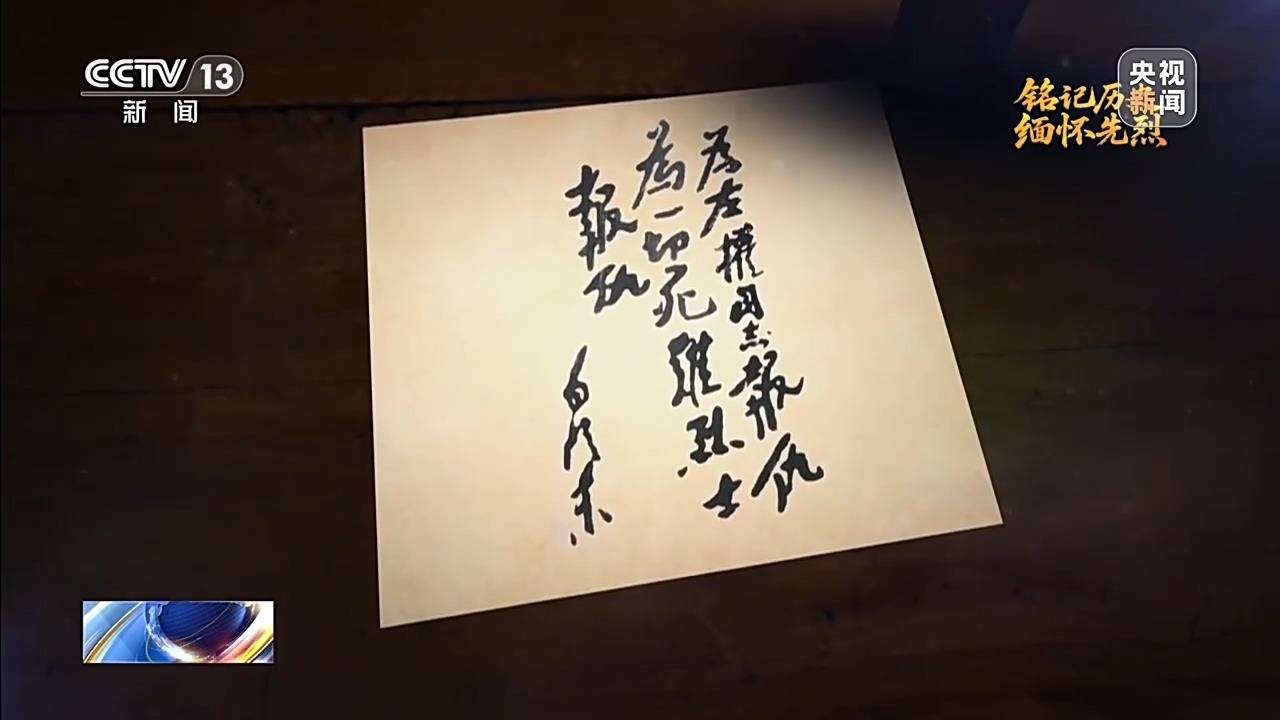 CCTV 13
新闻
央视
新闻
铭记历史
缅怀先烈
為左權同志報仇
為一切死難烈士
報仇